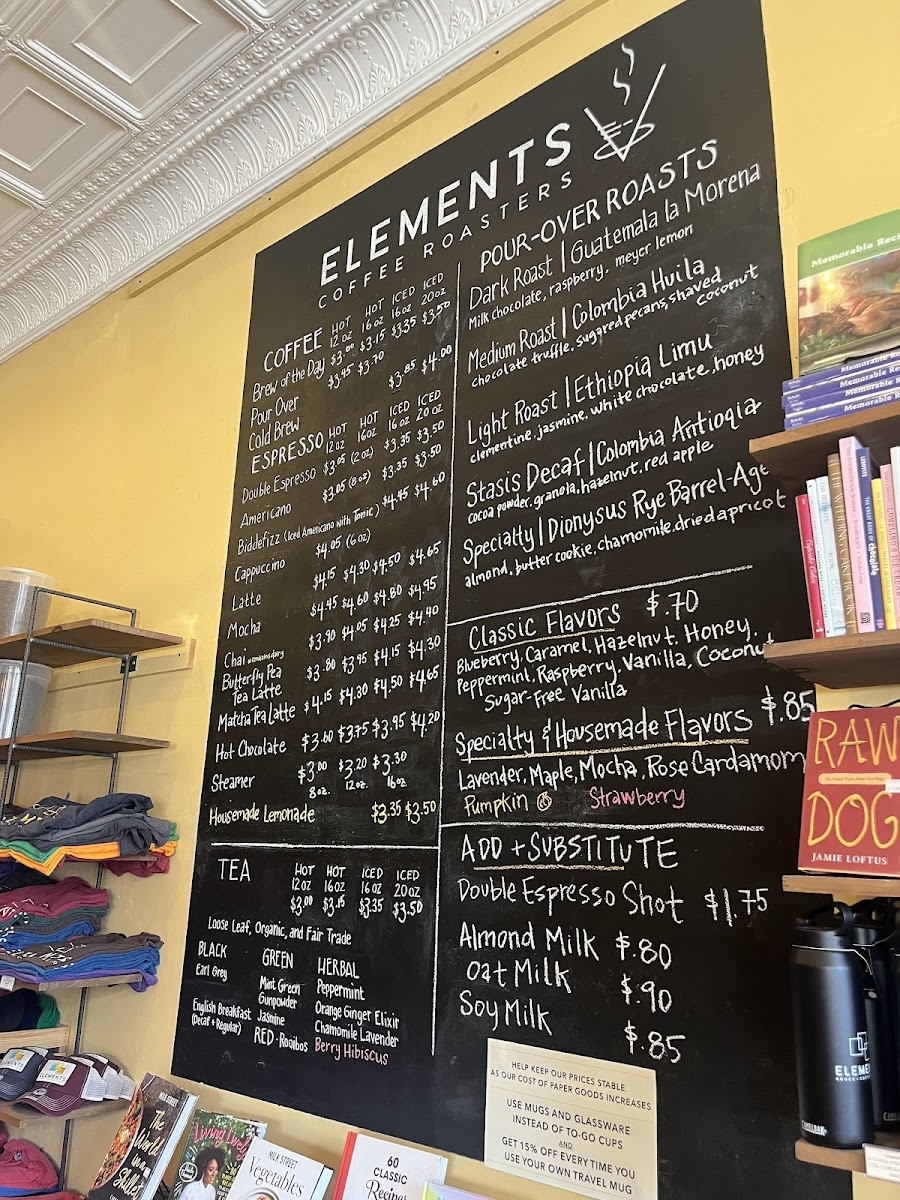 ELEMENTS
COFFEE ROASTERS
COFFEE HOT 12 oz HOT 16 oz ICED 16 oz ICED 20 oz
Brew of the Day $3.00 $3.15 $3.35 $3.50
Pour Over $3.45 $3.70
Cold Brew $3.85 $4.00
ESPRESSO HOT 12 oz HOT 16 oz ICED 16 oz ICED 20 oz
Double Espresso $3.05 (2 oz) $3.35 $3.50
Americano $3.05 (8 oz) $3.35 $3.50
Biddefizz (Iced Americano with Tonic) $4.45 $4.60
Cappuccino $4.05 (6 oz)
Latte $4.15 $4.30 $4.50 $4.65
Mocha $4.45 $4.60 $4.80 $4.95
Chai $3.90 $4.05 $4.25 $4.40
Butterfly Pea
Tea Latte $3.80 $3.95 $4.15 $4.30
Matcha Tea Latte $4.15 $4.30 $4.50 $4.65
Hot Chocolate $3.60 $3.75 $3.95 $4.20
Steamer $3.00 8 oz. $3.20 12 oz. $3.30 16 oz.
Housemade Lemonade $3.35 $3.50
TEA HOT 12 OZ HOT 16 OZ ICED 16 OZ ICED 20 OZ
$3.00 $3.15 $3.35 $3.50
Loose Leaf, Organic, and Fair Trade
BLACK
Earl Grey
English Breakfast
(Decaf + Regular)
GREEN
Mint Green
Gunpowder
Jasmine
RED - Rooibos
HERBAL
Peppermint
Orange Ginger Elixir
Chamomile Lavender
Berry Hibiscus
POUR-OVER ROASTS
Dark Roast | Guatemala la Morena
Milk chocolate, raspberry, meyer lemon
Medium Roast | Colombia Huila
chocolate truffle, sugared pecans, shaved
coconut
Light Roast | Ethiopia Limu
clementine, jasmine, white chocolate, honey
Stasis Decaf | Colombia Antioqia
cocoa powder, granola, hazelnut, red apple
Specialty | Dionysus Rye Barrel-Age
almond, butter cookie, chamomile, dried apricot
Classic Flavors $.70
Blueberry, Caramel, Hazelnut, Honey,
Peppermint, Raspberry, Vanilla, Coconut
Sugar-Free Vanilla
Specialty & Housemade Flavors $.85
Lavender, Maple, Mocha, Rose Cardamom
Pumpkin Strawberry
ADD + SUBSTITUTE
Double Espresso Shot $1.75
Almond Milk $.80
Oat Milk $.90
Soy Milk $.85
HELP KEEP OUR PRICES STABLE
AS OUR COST OF PAPER GOODS INCREASES
USE MUGS AND GLASSWARE
INSTEAD OF TO-GO CUPS
AND
GET 15% OFF EVERY TIME YOU
USE YOUR OWN TRAVEL MUG
Memorable Reci
Memorable Rec
Memorable Re
Memorable R
THE WEDDING CAKE BOOK
RAW
DOG
JAMIE LOFTUS
ELEMEN
CAMELBAK
ELEMENTS
MILK STREET
The World in a Skillet
Living Live
MILK STREET
Vegetables
60
CLASSIC
Recipes